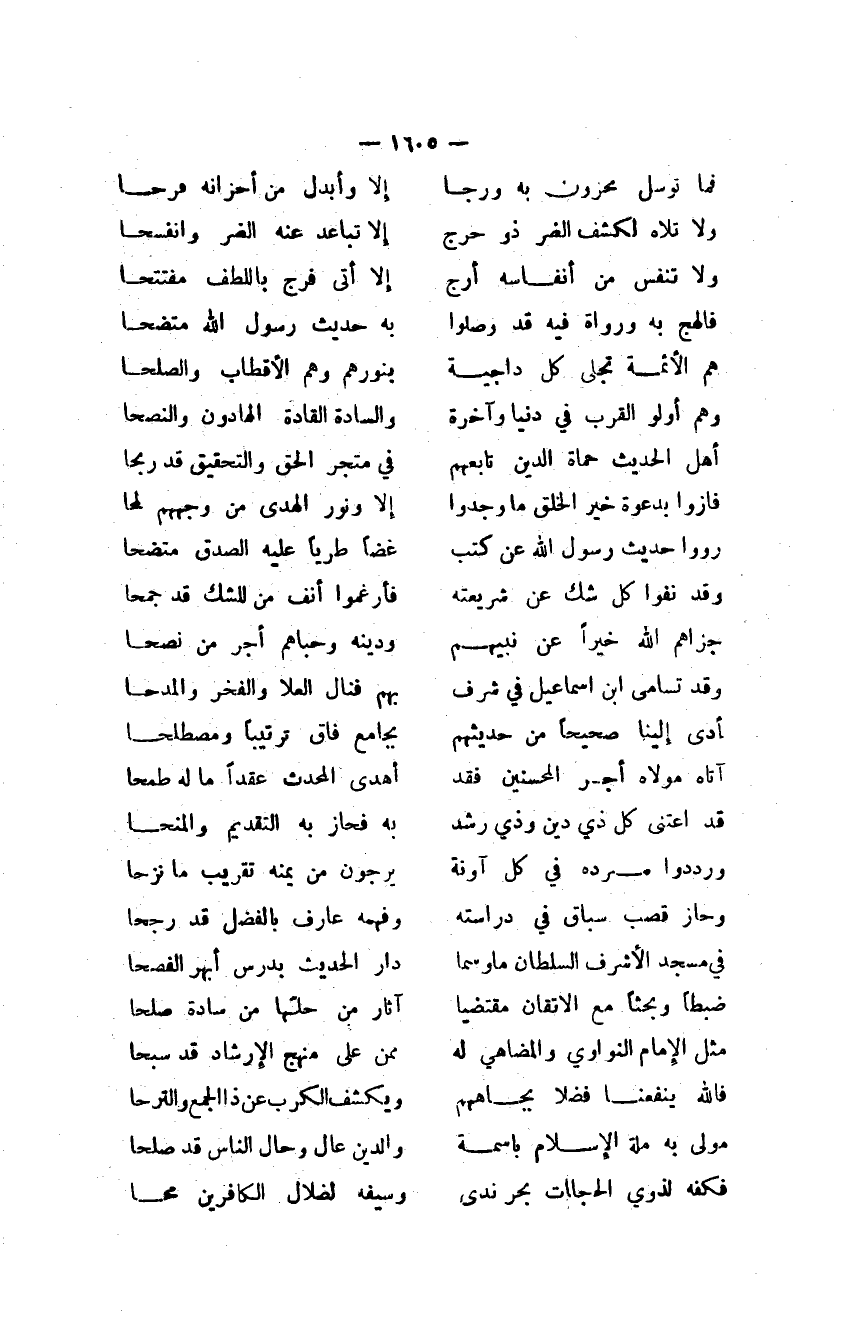 — ١٦٠٥ —
فما توسل محزون به ورجا إلا وأبدل من أحزانه فرحا
ولا تلاه لكشف الضر ذو حرج إلا تباعد عنه الضر وانفسحا
ولا تنفس من أنفاسه أرج إلا أتى فرج باللطف مفتتحا
فالهج به ورواة فيه قد وصلوا به حديث رسول الله متضحا
هم الأئمة تجلى كل داجية بنورهم وهم الأقطاب والصلحا
وهم أولو القرب في دنيا وآخرة والسادة القادة الهادون والنصحا
أهل الحديث حماة الدين تابعهم في متجر الحق والتحقيق قد ربحا
فازوا بدعوة خير الخلق ما وجدوا إلا ونور الهدى من وجههم لمحا
رووا حديث رسول الله عن كتب غضاً طرياً عليه الصدق متضحا
وقد نفوا كل شك عن شريعته فأرغموا أنف من للشك قد جمحا
جزاهم الله خيراً عن نبيهم ودينه وحباهم أجر من نصحا
وقد تسامى ابن اسماعيل في شرف بهم فنال العلا والفخر والمدحا
أدى إلينا صحيحاً من حديثهم بجامع فاق ترتيباً ومصطلحا
آتاه مولاه أجر المحسنين فقد أهدى المحدث عقداً ما له طمحا
قد اعتنى كل ذي دين وذي رشد به فحاز به التقديم والمنحا
ورددوا سرده في كل آونة يرجون من يمنه تقريب ما نزحا
وحاز قصب سباق في دراسته وفهمه عارف بالفضل قد رجحا
في مسجد الأشرف السلطان ماوسما دار الحديث بدرس أبهر الفصحا
ضبطاً وبحثاً مع الاتقان مقتضيا آثار من حلّها من سادة صلحا
مثل الإمام النواوي والمضاهي له ممن على منهج الإرشاد قد سبحا
فالله ينفعنا فضلا بجاههم ويكشف الكرب عن ذا الجمع والترحا
مولى به ملة الإسلام باسمة والدين عال وحال الناس قد صلحا
فكفه لذوي الحجاات بحر ندى وسيفه لضلال الكافرين محا